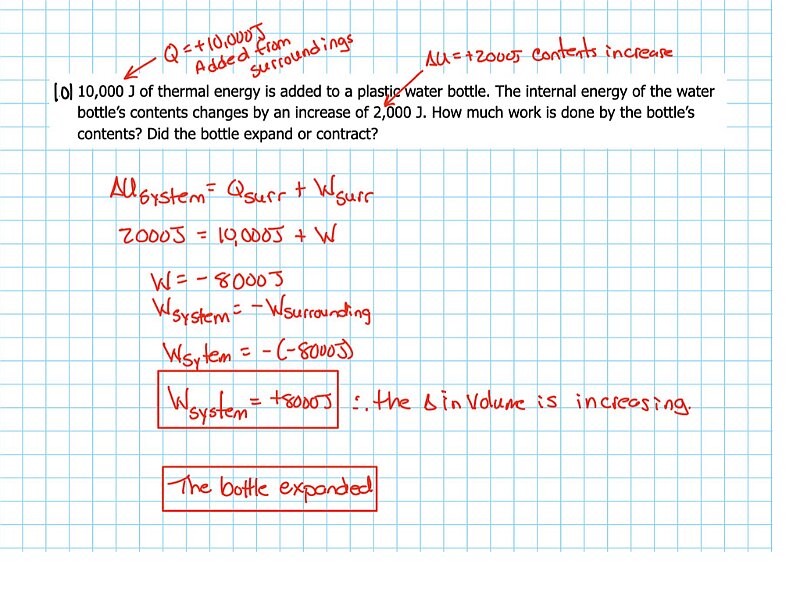 Q = +10,000J
Added from
surroundings
ΔU = +2000J contents increase
10) 10,000 J of thermal energy is added to a plastic water bottle. The internal energy of the water
bottle's contents changes by an increase of 2,000 J. How much work is done by the bottle's
contents? Did the bottle expand or contract?
ΔUsystem = Qsurr + Wsurr
2000J = 10,000J + W
W = - 8000J
Wsystem = - Wsurrounding
Wsytem = - (-8000J)
Wsystem = +8000J ∴ the Δ in Volume is increasing.
The bottle expanded